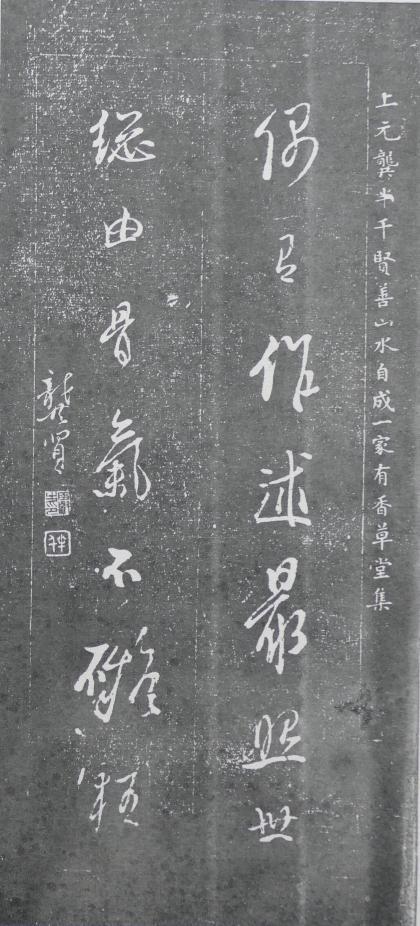 上元龔半千賢善山水自成一家有香草堂集
偶有作述最照世
總由骨氣不礙
龔賢